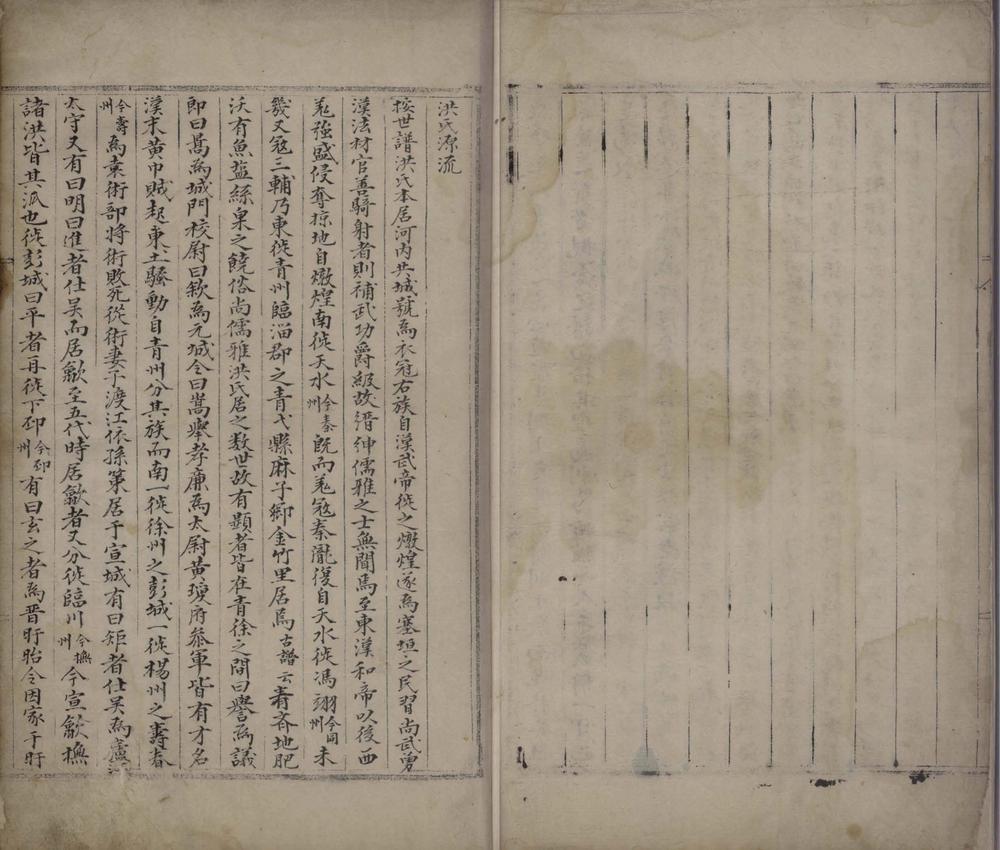 洪氏源流
按世譜洪氏本居河內共城號為衣冠右族自漢武帝徙之燉煌遂為塞垣之民習尚武勇
漢法材官善騎射者則補武功爵級故縉紳儒雅之士無聞焉至東漢和帝以後西
羌強盛侵奪掠地自燉煌南徙天水今秦州既而羌寇秦隴復自天水徙馮翊今同州未
幾又寇三輔乃東徙青州臨淄郡之青弋縣麻子鄉金竹里居焉古譜云青齊地肥
沃有魚鹽絲枲之饒俗尚儒雅洪氏居之数世故有顯者皆在青徐之間曰譽為議
即曰暠為城門校尉曰欽為元城令曰嵩舉孝廉為太尉黃瓊府叅軍皆有才名
漢末黃巾賊起東土騷動自青州分其族而南一徙徐州之彭城一徙楊州之壽春
今壽州為袁術部將術敗死從術妻子渡江依孫策居于宣城有曰矩者仕吴為廬江
太守又有曰明曰進者仕吴而居歙至五代時居歙者又分徙臨川今撫州今宣歙撫
諸洪皆其泒也徙彭城曰平者再徙下邳今邳州有曰玄之者為晋盱眙令因家于盱